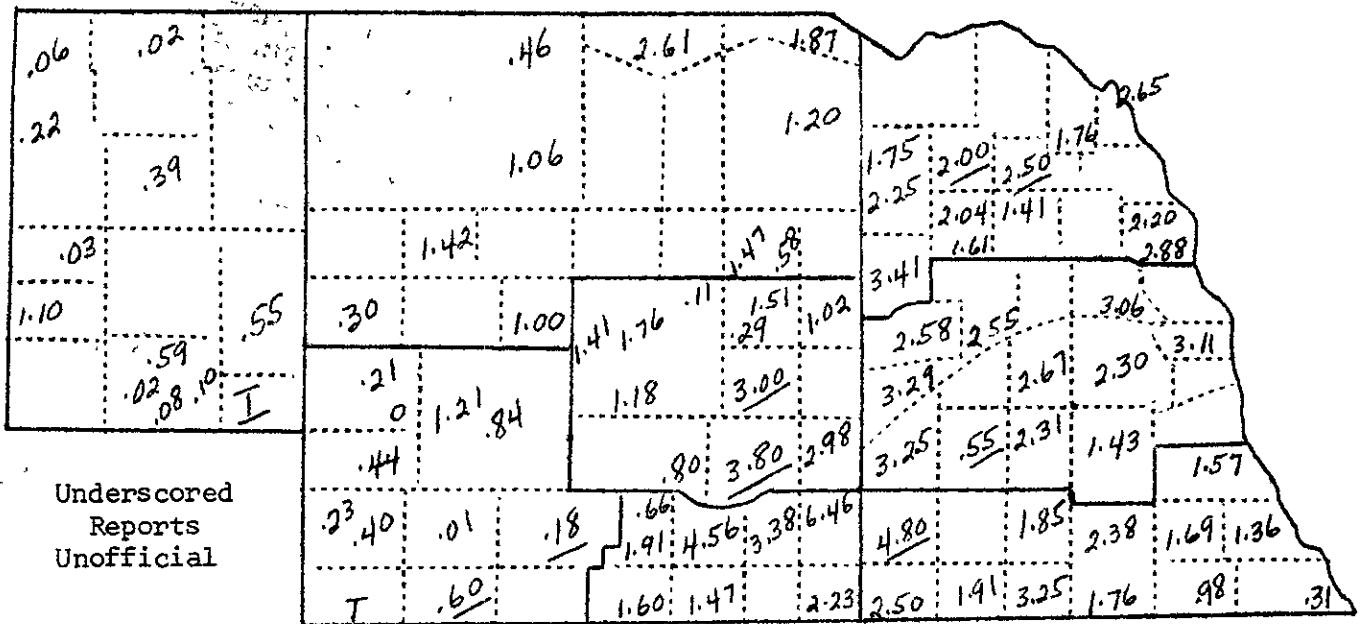 .06 .02 .46 2.61 1.87
2.65
.22 1.20 1.76
.39 1.06 1.75 2.00 2.50
2.25
1.42 2.04 1.41 2.20
.03 1.47 .58 3.41 1.61 2.88
1.10 .55 .30 1.00 1.41 1.76 .11 1.51 .29 1.02 2.58 2.55 3.06
3.11
.59 .21 1.18 3.00 3.29 2.67 2.30
.02 .08 .10 T 0 1.21 .84
.44 .80 3.80 2.98 3.25 .55 2.31 1.43 1.57
Underscored
Reports
Unofficial
.23 .40 .01 .18 .66 1.91 4.56 3.38 6.46 4.80 1.85 2.38 1.69 1.36
T .60 1.60 1.47 2.23 2.50 1.91 3.25 1.76 .98 .31